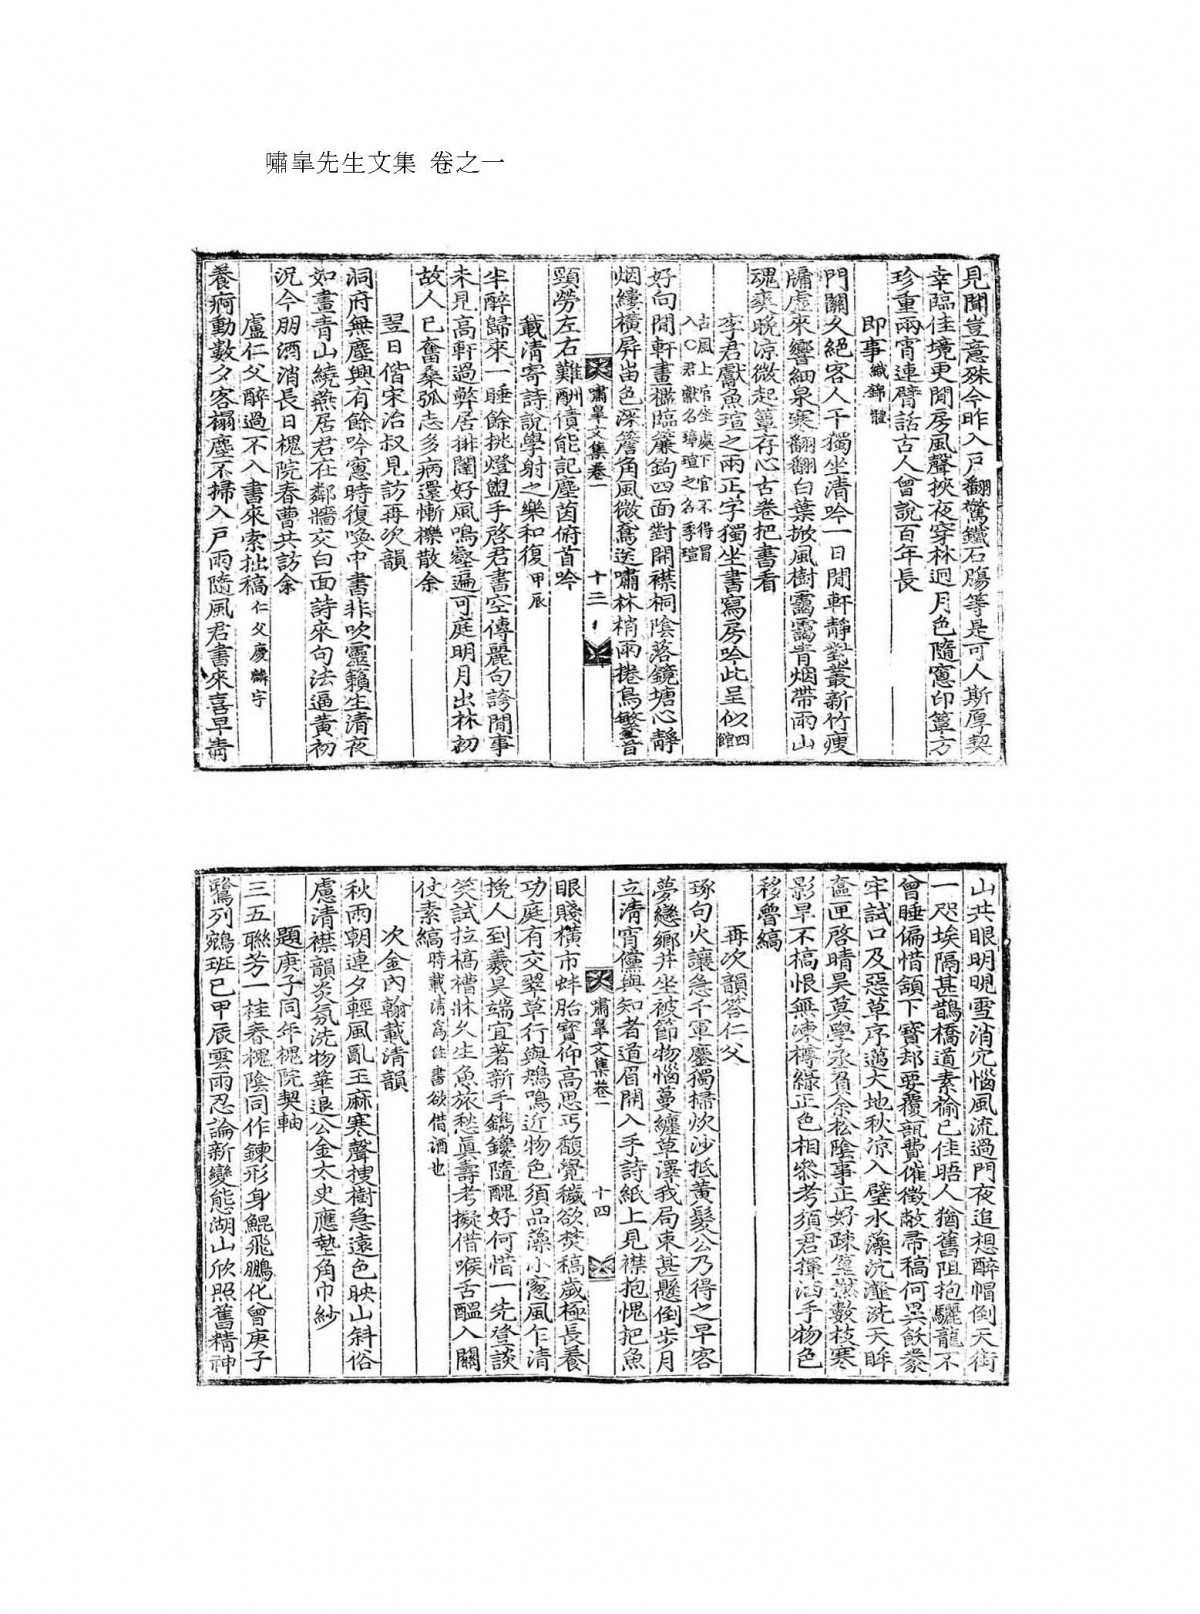 嘯皐先生文集 卷之一
見聞豈意殊今昨入戶翻驚鐵石膓等是可人斯厚契
幸臨佳境更閒房風聲挾夜穿林迥月色隨窓印簟方
珍重兩宵連臂話古人曾說百年長
即事織錦體
門關久絕客人干獨坐清吟一日閒軒靜對叢新竹瘦
牖虛來響細泉寒翻翻白葉掀風樹靄靄青烟帶雨山
魂爽晚凉微起簟存心古卷把書看
李君獻魚瑄之兩正字獨坐書寫房吟此呈似四館
古風上官坐處下官不得冒
入○君獻名璋瑄之名季瑄
好向閒軒畫檻臨簾鉤四面對開襟桐陰落鏡塘心靜
烟縷橫屛岀色深簷角風微鴌送嘯林梢雨捲鳥繁音
嘯皐文集卷一 十三
頸勞左右難酬債能記塵茵俯首吟
載清寄詩說學射之樂和復甲辰
半醉歸來一睡餘挑燈盥手啓君書空傳麗句誇閒事
未見高軒過弊居排闥好風鳴壑遍可庭明月出林初
故人已奮桑弧志多病還慚櫟散余
翌日偕宋治叔見訪再次韻
洞府無塵興有餘吟窓時復喚中書非吹靈籟生清夜
如畫青山繞燕居君在鄰牆交白面詩來句法逼黃初
況今朋酒消長日槐院春曹共訪余
盧仁父醉過不入書來索拙稿仁父慶麟字
養痾動數夕客榻塵不掃入戶雨隨風君書來喜早靑
山共眼明晛雪消宂惱風流過門夜追想醉帽倒天街
一咫埃隔甚鵲橋道素榆已佳晤人猶舊阻抱驪龍不
曾睡偏惜頷下寶却要覆瓿費催徵敝帚稿何異飲豢
牢試口及惡草序邁大地秋凉入璧水藻沆瀣洗天眸
奩匣啓晴昊莫學丞負余松陰事正好疎篁燃數枝寒
影早不槁恨無凍樽綠正色相叅考須君揮洒手物色
移魯縞
再次韻答仁父
琢句火讓急千軍鏖獨掃炊沙抵黃髮公乃得之早客
夢戀鄉井坐被節物惱蔓纏草澤我局束甚懸倒步月
立清宵儻與知者道眉開入手詩紙上見襟抱愧把魚
嘯皐文集卷一 十四
眼賤橫市蚌胎寶仰高思丐馥覺穢欲焚稿歲極長養
功庭有交翠草行與鴂鳴近物色須品藻小窓風乍清
挽人到羲昊端宜著新手鐫鑱隨醜好何惜一先登談
笑試拉槁槽牀久生魚旅愁眞壽考擬借喉舌醞入關
仗素縞時載清寫注書欲借酒也
次金內翰載清韻
秋雨朝連夕輕風亂玉麻寒聲搜樹急遠色映山斜俗
慮清襟韻炎氛洗物華退公金太史應墊一角巾紗
題庚子同年槐院契軸
三五聯芳一桂春槐陰同作鍊形身鯤飛鵬化曾庚子
鷺列鵷班已甲辰雲雨忍論新變態湖山欣照舊精神